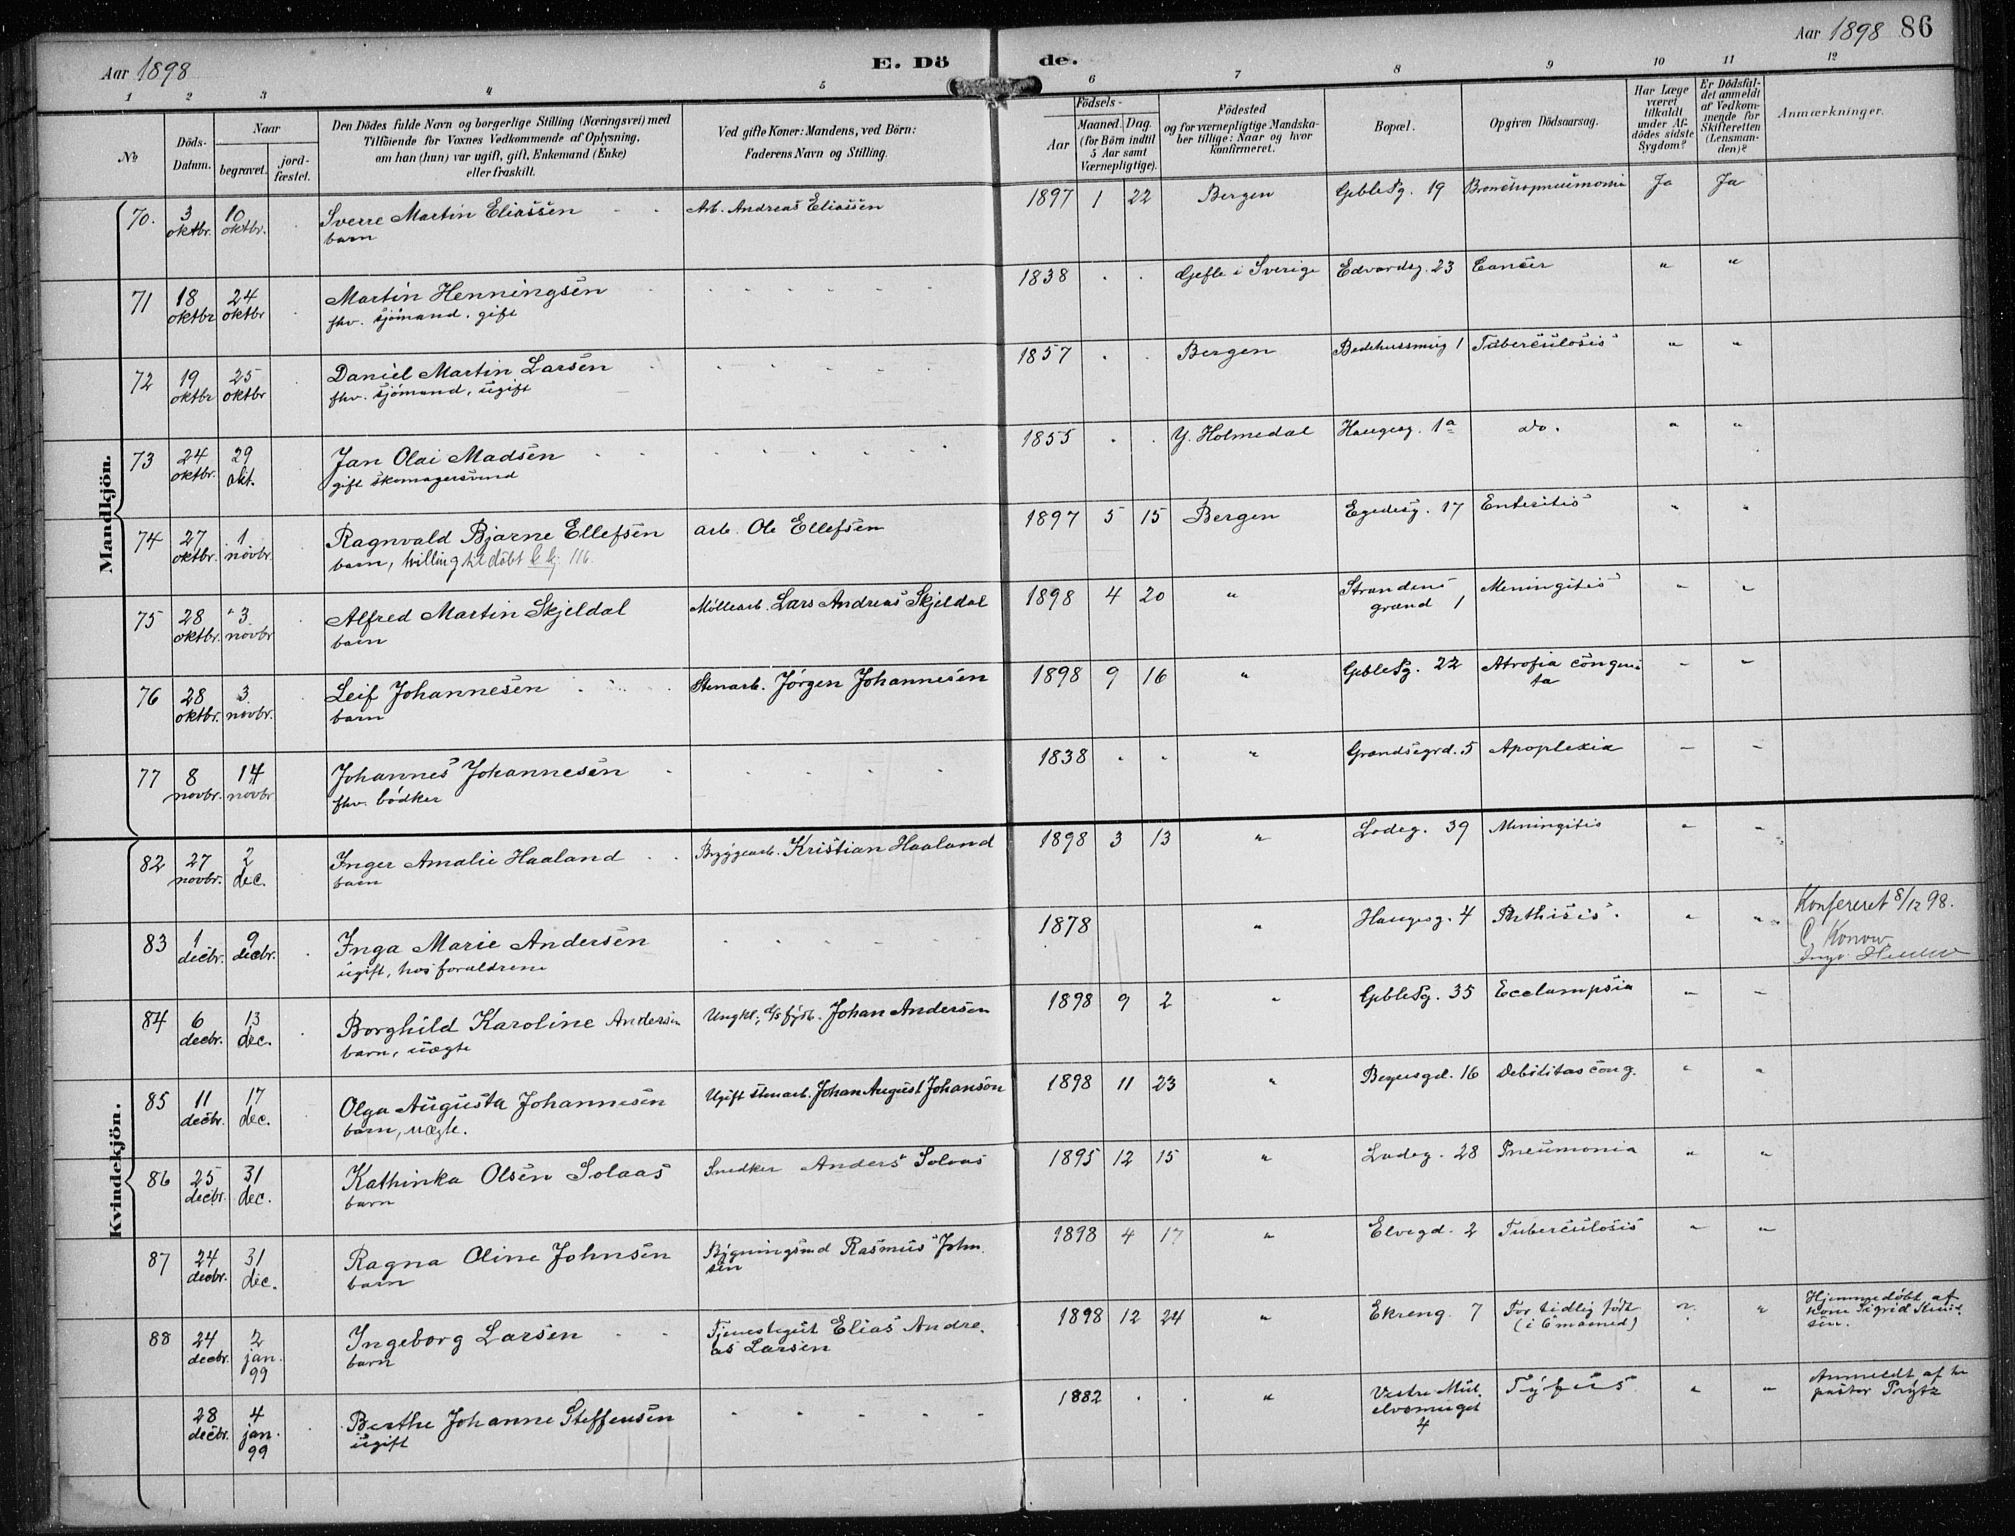 Aar 1898
E. Dö
de.
Aar 1898 86
1 2 3 4 5 6 7 8 9 10 11 12
No
Döds-Datum.
Naar
begravet.
jord-fæstet.
Den Dödes fulde Navn og borgerlige Stilling (Næringsvei) med
Tilföiende for Voxnes Vedkommende af Oplysning,
om han (hun) var ugift, gift, Enkemand (Enke)
eller fraskilt.
Ved gifte Koner: Mandens, ved Börn:
Faderens Navn og Stilling.
Födsels-
Aar
Maaned. Dag.
(for Börn indtil
5 Aar samt
Værnepligtige).
Födested
og for værnepligtige Mandska-
ber tillige: Naar og hvor
konfirmeret.
Bopæl.
Opgiven Dödsaarsag.
Har Læge
været
tilkaldt
under Af-
dödes sidste
Sygdom?
Er Dödsfal-
det anmeldt
af Vedkom-
mende for
Skifteretten
(Lensman-
den)?
Anmærkninger.
Mandkjön.
70. 3 oktbr. 10 oktbr. Sverre Martin Eliassen Arb. Andreas Eliassen 1897 1 22 Bergen Gbleg. 19 Bronchopneumonia Ja Ja
barn
71 18 oktbr 24 oktbr Martin Henningsen 1838 Gefle i Sverige Edvardsg. 23 Cancer " "
fhv. sjømand. gift
72 19 oktbr 25 oktbr Daniel Martin Larsen 1857 Bergen Bedehussmug 1 Tuberculosis " "
fhv. sjømand, ugift
73 24 oktbr. 29 okt. Jan Olai Madsen 1855 Y. Holmedal Haugeg. 1a do. " "
gift skomagersvend
74 27 oktbr. 1 novbr. Ragnvald Bjarne Ellefsen arb. Ole Ellefsen 1897 5 15 Bergen Egedesg. 17 Enteritis " "
barn, tvilling hj. döbt k kj. 116.
75 28 oktbr. 3 novbr Alfred Martin Skjeldal Møllearb. Lars Andreas Skjeldal 1898 4 20 " Strandens grænd 1 Meningitis " "
barn
76 28 oktbr. 3 novbr. Leif Johannesen Stenarb. Jørgen Johannesen 1898 9 16 " Gbleg. 22 Atrofia congeni
ta
barn
77 8 novbr. 14 novbr Johannes Johannesen 1838 " Grandsegrd. 5 Apoplexia
fhv. bødker
Kvindekjön.
82 27 novbr. 2 dec. Inger Amalie Haaland Bryggearb. Kristian Haaland 1898 3 13 " Ladeg. 39 Meningitis " "
barn
83 1 decbr. 9 decbr. Inga Marie Andersen 1878 " Haugeg. 4 Phthisis. " " Konfereret 8/12 98.
ugift, hos forældrene C. Konow
84 6 decbr. 13 dec. Borghild Karoline Andersen Ungkl., Johan Andersen 1898 9 2 " Gbleg. 35 Ecclampsia
barn, uægte
85 11 decbr. 17 dec. Olga Augusta Johannesen Ugift stenarb. Johan August Johanson 1898 11 23 " 16 Debilitas cong. " "
barn, uægte.
86 25 decbr. 31 dec. Kathinka Olsen Solaas Snedker Anders Solaas 1895 12 15 " Ladeg. 28 Pneumonia " "
barn
87 24 decbr. 31 dec. Ragna Oline Johnsen Bygningssnd Rasmus John
sen 1898 4 17 " Elvegd. 2 Tuberculosis " "
barn
88 24 decbr. 2 jan. 99 Ingeborg Larsen Tjenestegut Elias Andre
as Larsen 1898 12 24 " Ekreng. 7 For tidlig født
(i 6 maaned) " " Hjemmedøbt af
kone Sigrid Knut
sen.
barn
28 decbr. 4 jan. 99 Berthe Johanne Steffensen 1882 " Vestre Mül.
elvsmuget
4 Tyfus " " Anmeldt af hr
pastor Prytz
ugift